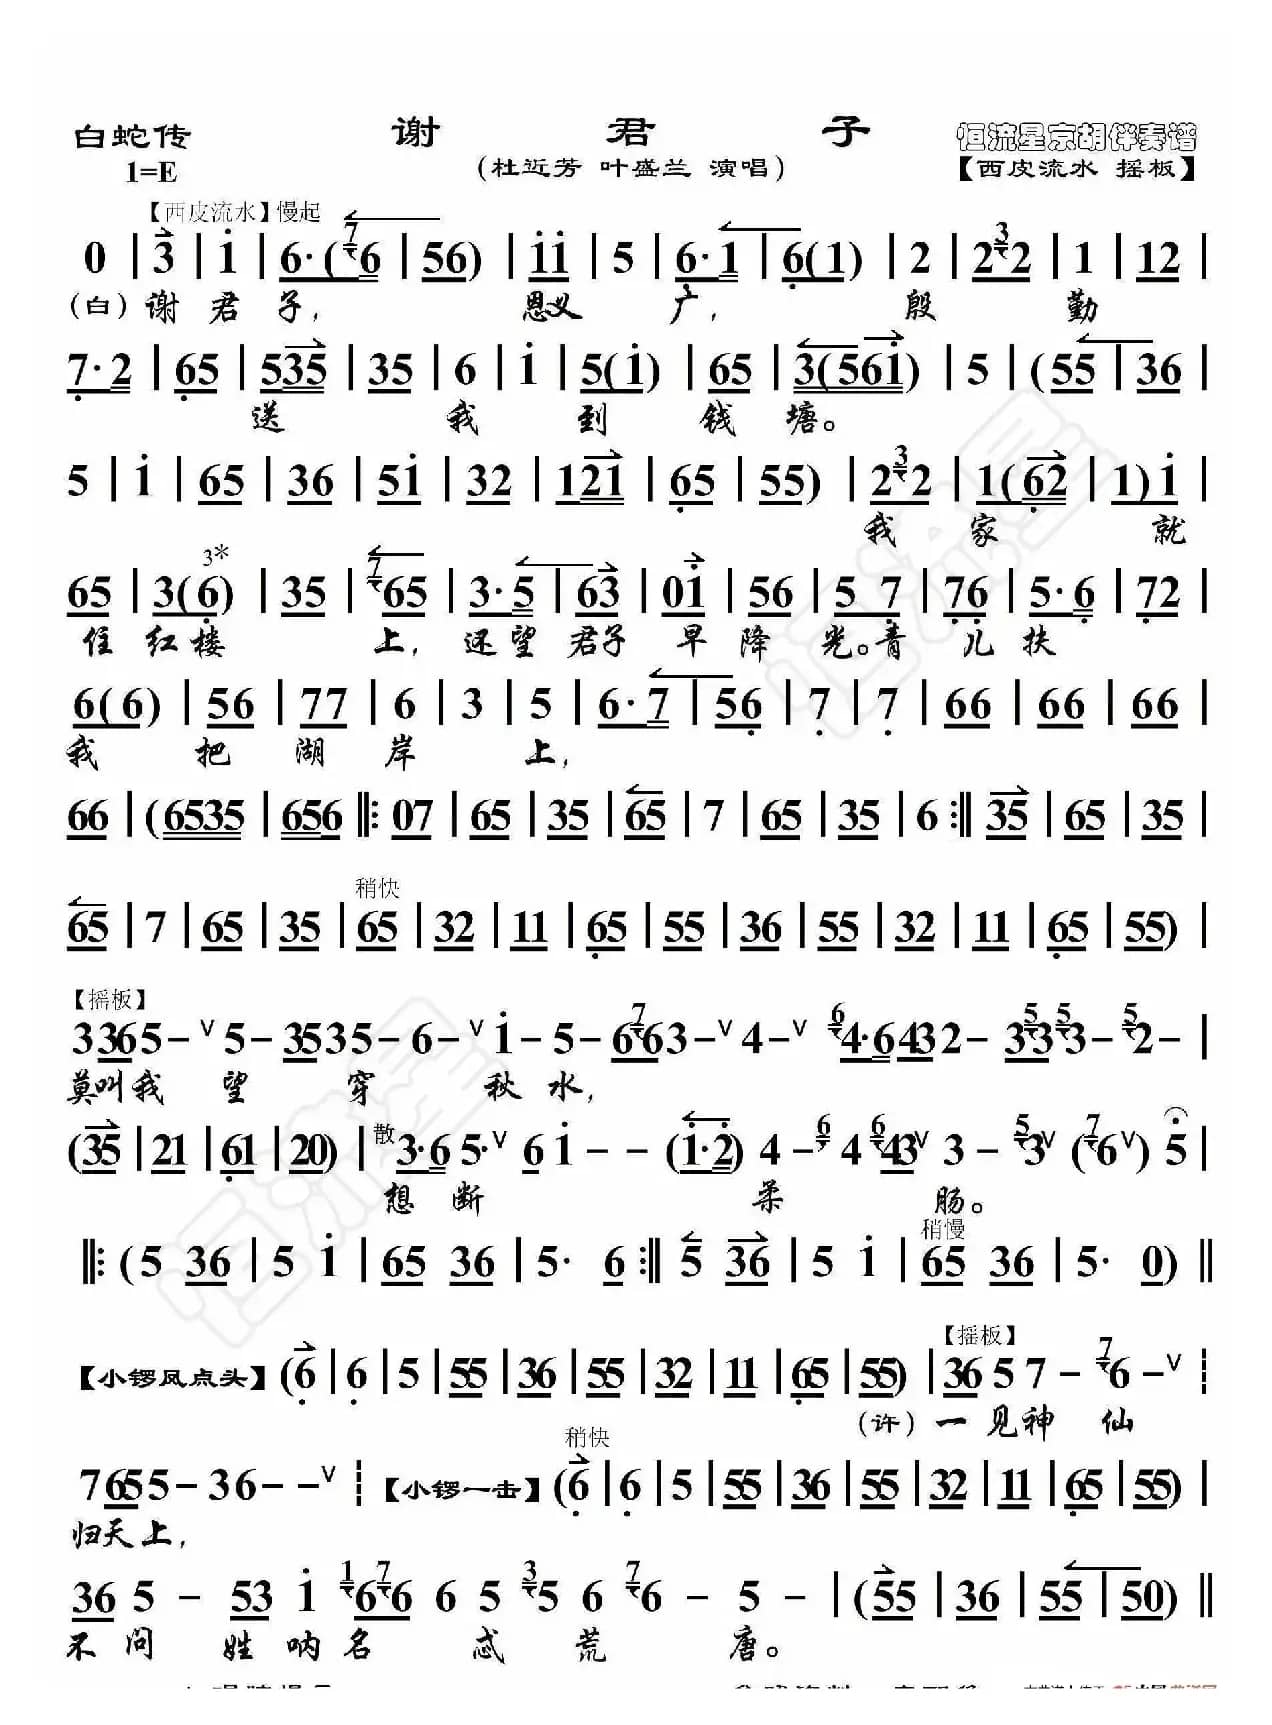 白蛇传 谢君子 恒流星京胡伴奏谱
1=E (杜近芳 叶盛兰 演唱) 【西皮流水 摇板】
【西皮流水】慢起
0 | 3 | i | 6·(7 6 | 56) | i i | 5 | 6·1 | 6(1) | 2 | 2 3 2 | 1 | 12 |
(白)谢君子, 恩义广, 殷勤
7·2 | 65 | 535 | 35 | 6 | i | 5(i) | 65 | 3(56i) | 5 | (55 | 36 |
送我到钱塘。
5 | i | 65 | 36 | 5i | 32 | 121 | 65 | 55) | 2 3 2 | 1(62 | 1)i |
我家就
3*
65 | 3(6) | 35 | 7 65 | 3·5 | 63 | 0i | 56 | 5 7 | 76 | 5·6 | 72 |
住红楼上, 还望君子早降光。青儿扶
6(6) | 56 | 77 | 6 | 3 | 5 | 6·7 | 56 | 7 | 7 | 66 | 66 | 66 |
我把湖岸上,
66 | (6535 | 656 ‖: 07 | 65 | 35 | 65 | 7 | 65 | 35 | 6 :‖ 35 | 65 | 35 |
稍快
65 | 7 | 65 | 35 | 65 | 32 | 11 | 65 | 55 | 36 | 55 | 32 | 11 | 65 | 55) |
【摇板】
3365– ∨ 5–3535–6– ∨ i–5–6 7 63– ∨ 4– ∨ 6 4·6432–3 5 3 5 3– 5 2– |
莫叫我望穿秋水,
(35 | 21 | 61 | 20) | 散 3·6 5· ∨ 6 i – – (i·2) 4 – 6 4 6 43 ∨ 3 – 5 3 (7 6 ∨) 5 |
想断柔肠。
稍慢
‖: (5 36 | 5 i | 65 36 | 5· 6 :‖ 5 36 | 5 i | 65 36 | 5· 0) ‖
【摇板】
【小锣凤点头】(6 | 6 | 5 | 55 | 36 | 55 | 32 | 11 | 65 | 55) | 36 5 7 – 7 6 – ∨
(许)一见神仙
稍快
7655–36–– ∨ 【小锣一击】(6 | 6 | 5 | 55 | 36 | 55 | 32 | 11 | 65 | 55) |
归天上,
36 5 – 53 i 1 6 7 6 6 5 3 5 6 7 6 – 5 – | (55 | 36 | 55 | 50) ‖
不问姓呐名忒荒唐。